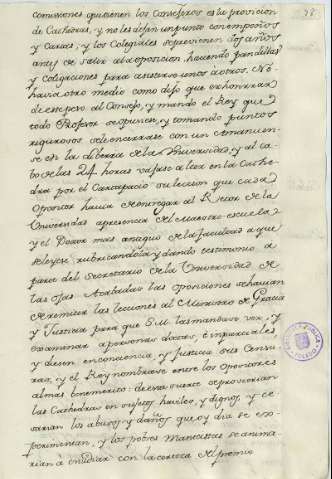 comisiones quisieren los Consejeros es la provision
de Cathedras, y no les dejan un punto con empeños
y Cartas; y los Colegiales se previenen dos años
antes de salir a la oposicion haciendo pandillas
y coligaciones para asistirse unos a otros. No
havia otro medio como dijo que exhonerar
de este peso al Consejo, y mando el Rey que
todo Profesor se opusiere, y tomando puntos
rigurosos se encerrase con un Amanuen-
se en la libreria de la Universidad, y al ca-
bo de las 24 horas vajase a leer en la Cathe-
dra por el Cartapacio su leccion que cada
Opositor havia de entregar al Rector de la
Universidad a presencia del Maestre escuela
y el Doctor mas antiguo de la facultad a que
se leyese, rubricandola y dando testimonio a
parte del Secretario de la Universidad de
las ojas. Acabadas las oposiciones se havian
de remitir las lecciones al Ministro de Gracia
y Justicia para que S.M. las mandase ver, y
examinar a personas doctas, e imparciales
y diesen en conciencia, y Justicia sus Censu-
ras, y el Rey nombrase entre los Opositores
al mas benemerito: de esta suerte se proveerian
las Cathedras en sujetos haviles, y dignos y ce-
sarian los abusos y daños que oy dia se ex-
perimentan, y los pobres Manteistas se anima-
rian a estudiar con la certeza del premio